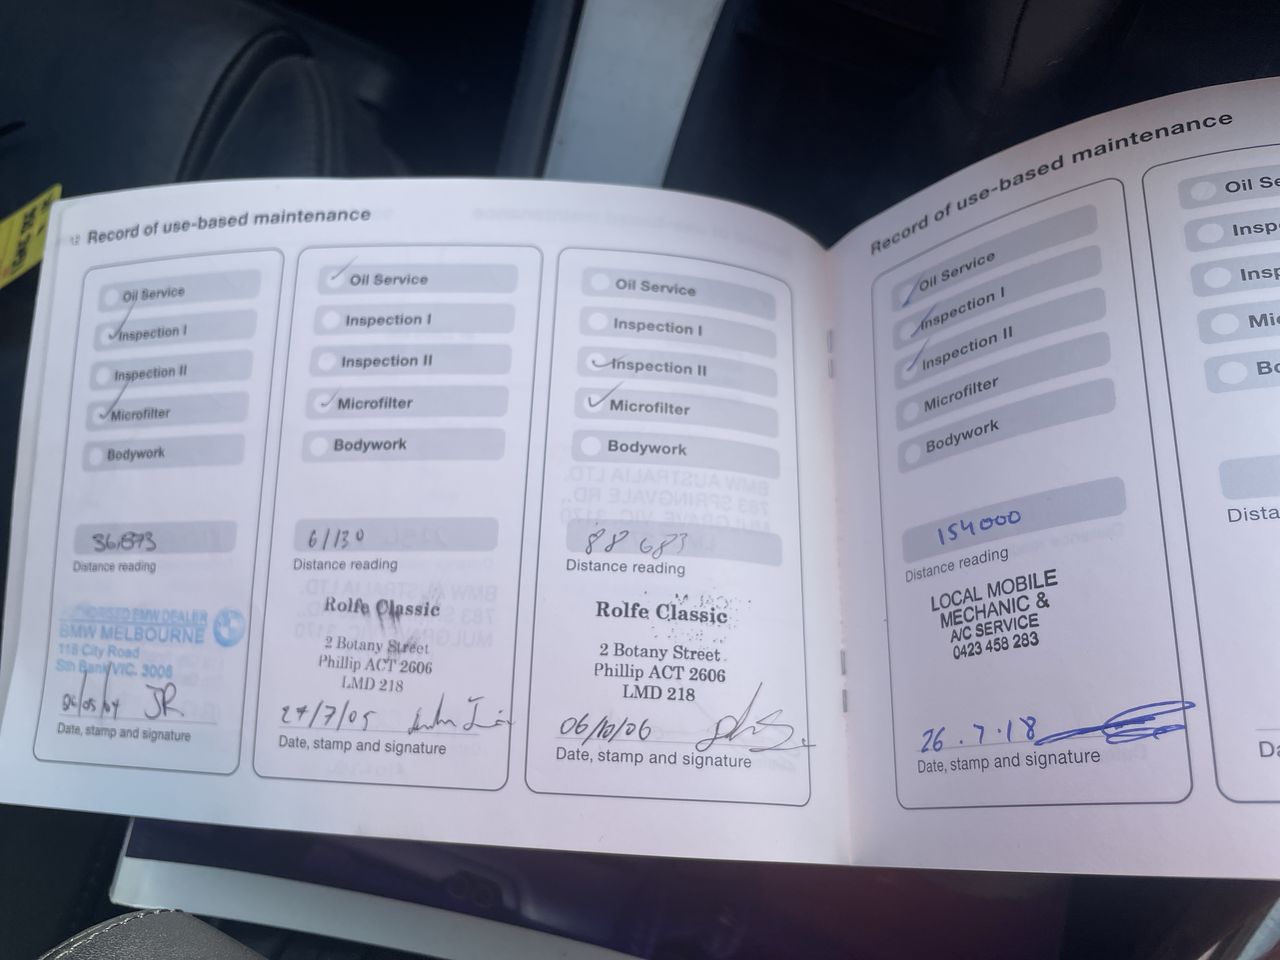 12 Record of use-based maintenance
Oil Service
Inspection I
Inspection II
Microfilter
Bodywork
36,873
Distance reading
AUTHORISED BMW DEALER
BMW MELBOURNE
118 City Road
Sth Bank VIC. 3006
JR
Date, stamp and signature
Oil Service
Inspection I
Inspection II
Microfilter
Bodywork
61130
Distance reading
Rolfe Classic
2 Botany Street
Phillip ACT 2606
LMD 218
27/7/05
Date, stamp and signature
Oil Service
Inspection I
Inspection II
Microfilter
Bodywork
88683
Distance reading
Rolfe Classic
2 Botany Street
Phillip ACT 2606
LMD 218
06/10/06
Date, stamp and signature
Record of use-based maintenance
Oil Service
Inspection I
Inspection II
Microfilter
Bodywork
154000
Distance reading
LOCAL MOBILE
MECHANIC &
A/C SERVICE
0423 458 283
26.7.18
Date, stamp and signature
Oil Se
Inspe
Insp
Mi
Bo
Dista
Da